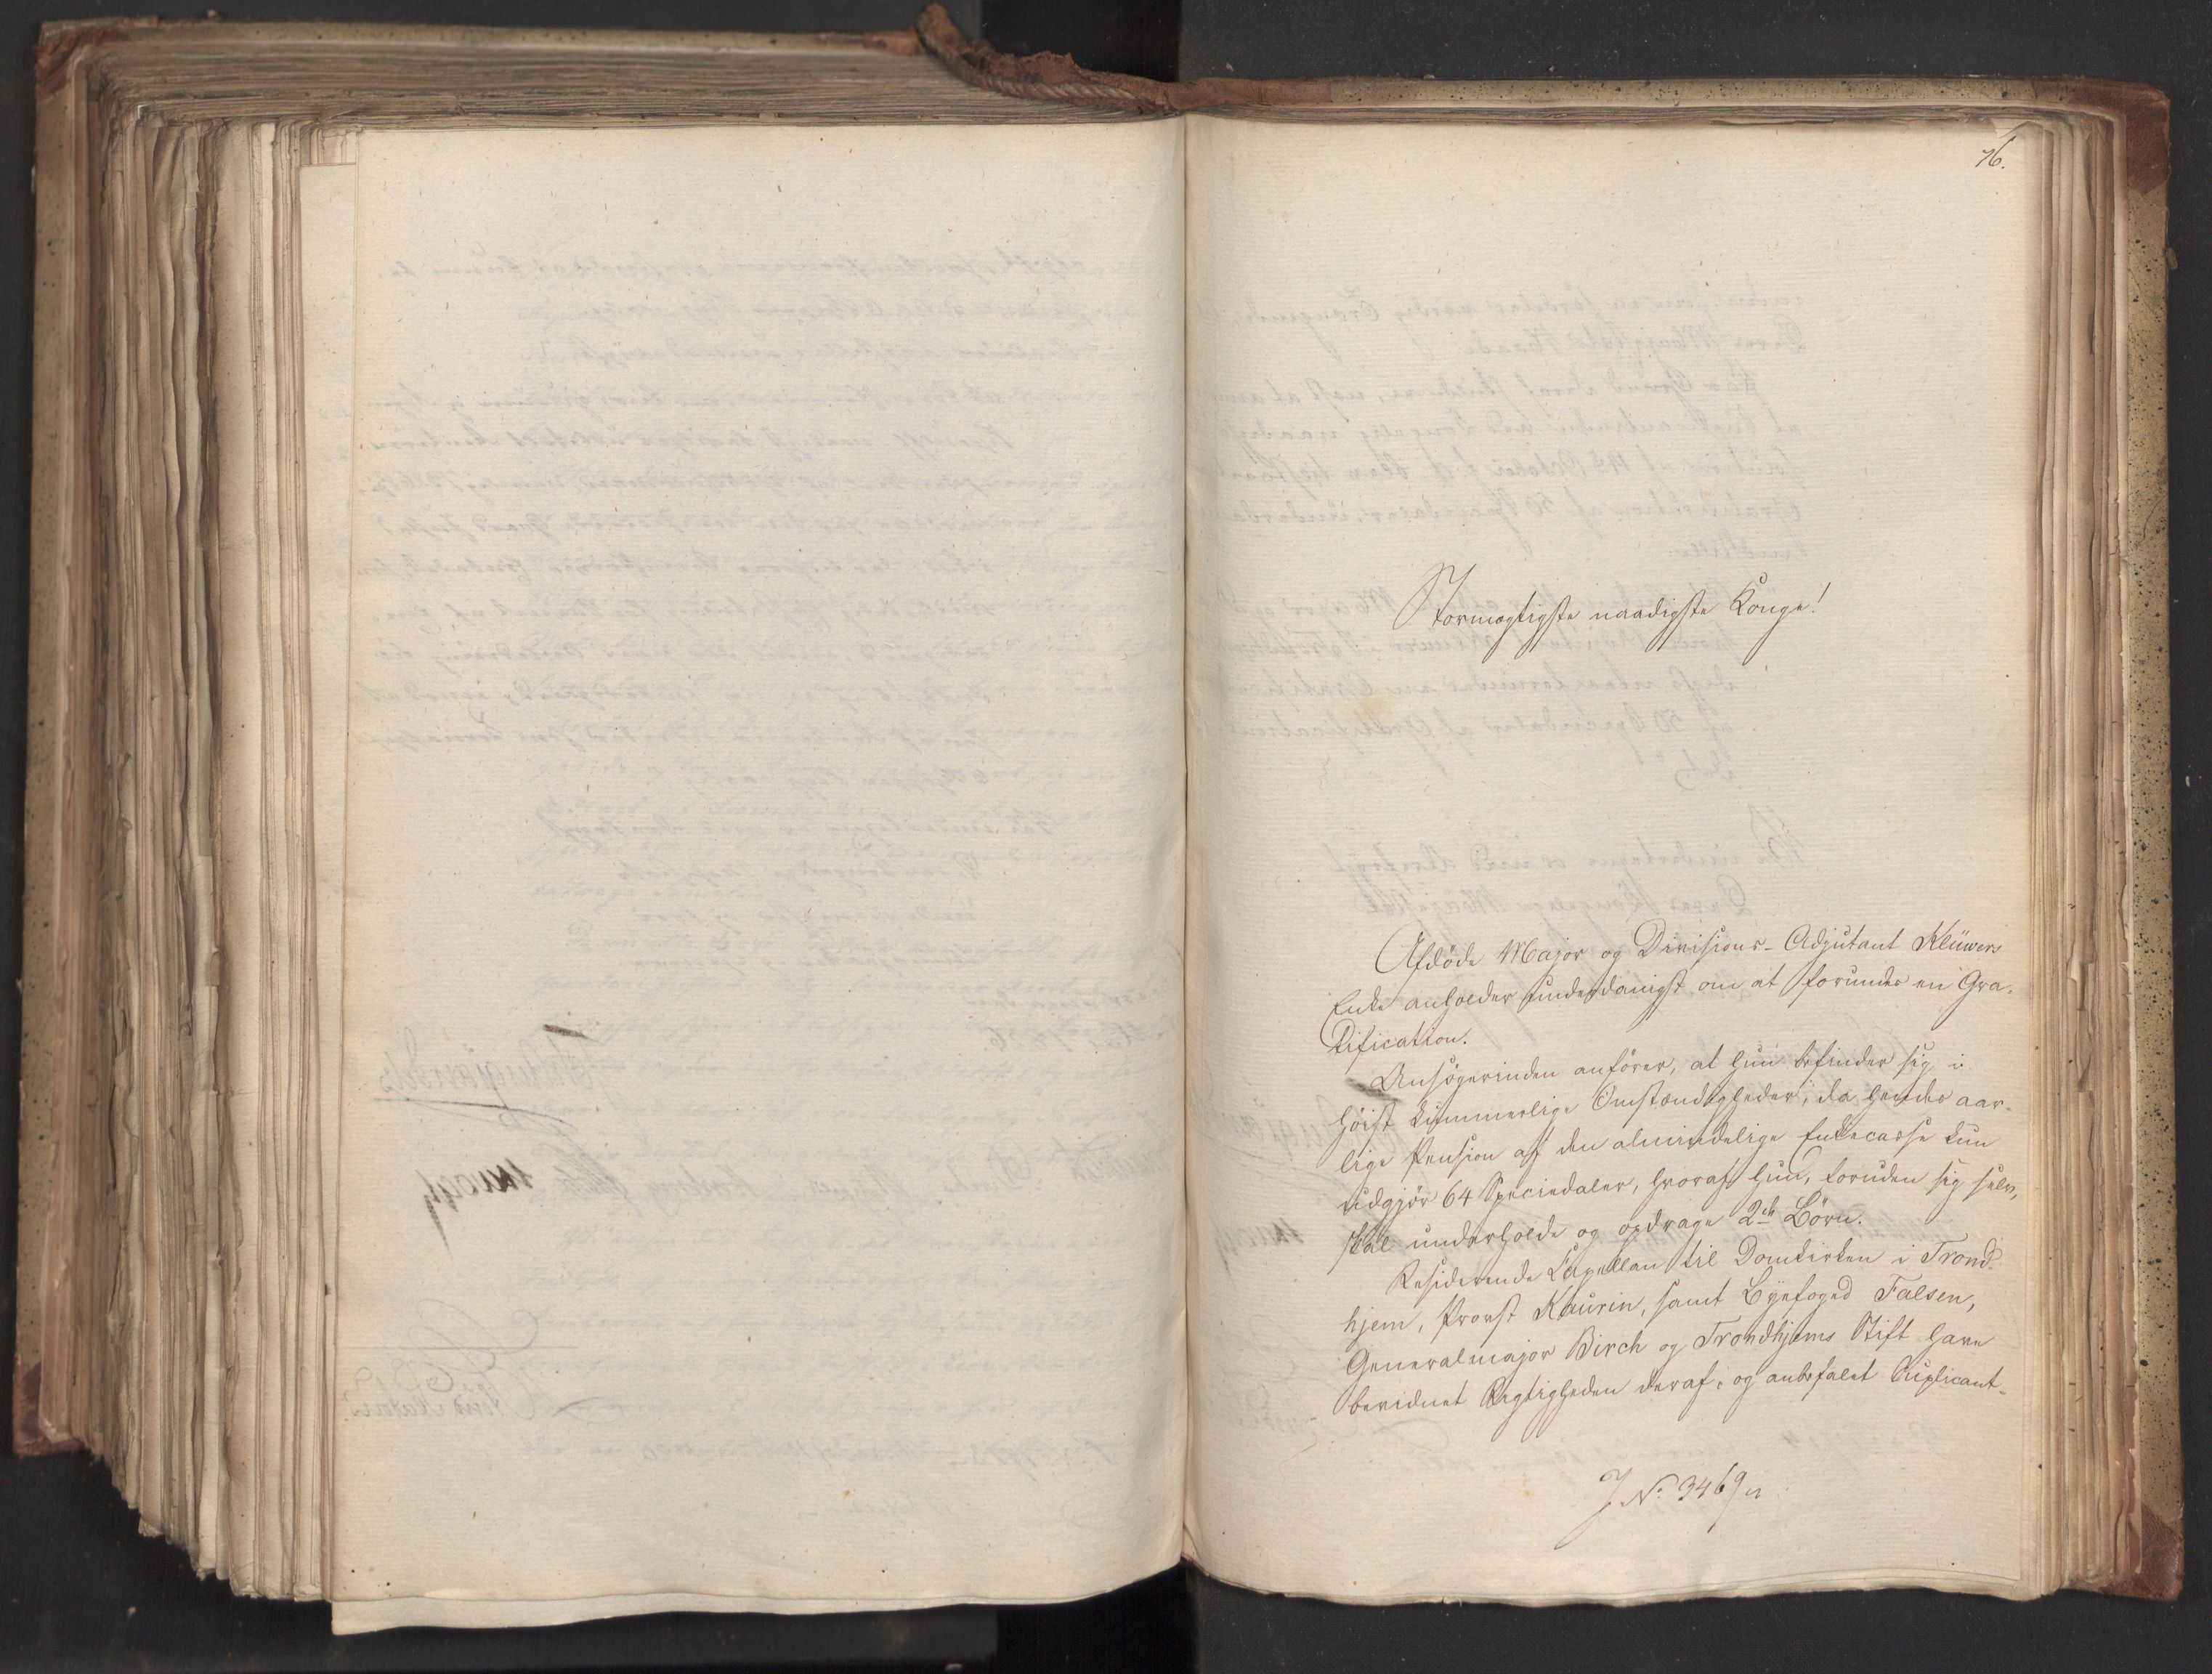 76.
Stormægtigste naadigste Konge!
Afdöde Major og Divisions-Adjutant Klüwers
Enke anholder underdanigst om at forundes en Gra-
tification.
Ansögerinden anförer, at hun befinder sig i
höist kummerlige Omstændigheder, da hendes aar-
lige Pension af den almindelige Enkecasse kun
udgjör 64 Speciedaler, hvoraf hun, foruden sig selv,
skal underholde og opdrage 2de Börn.
Residerende Capellan til Domkirken i Trond-
hjem, Provst Kaurin, samt Byefoged Falsen,
Generalmajor Birch og Trondhjems Stift have
bevidnet Rigtigheden deraf, og anbefalet Suplicant-
J. No. 3469/